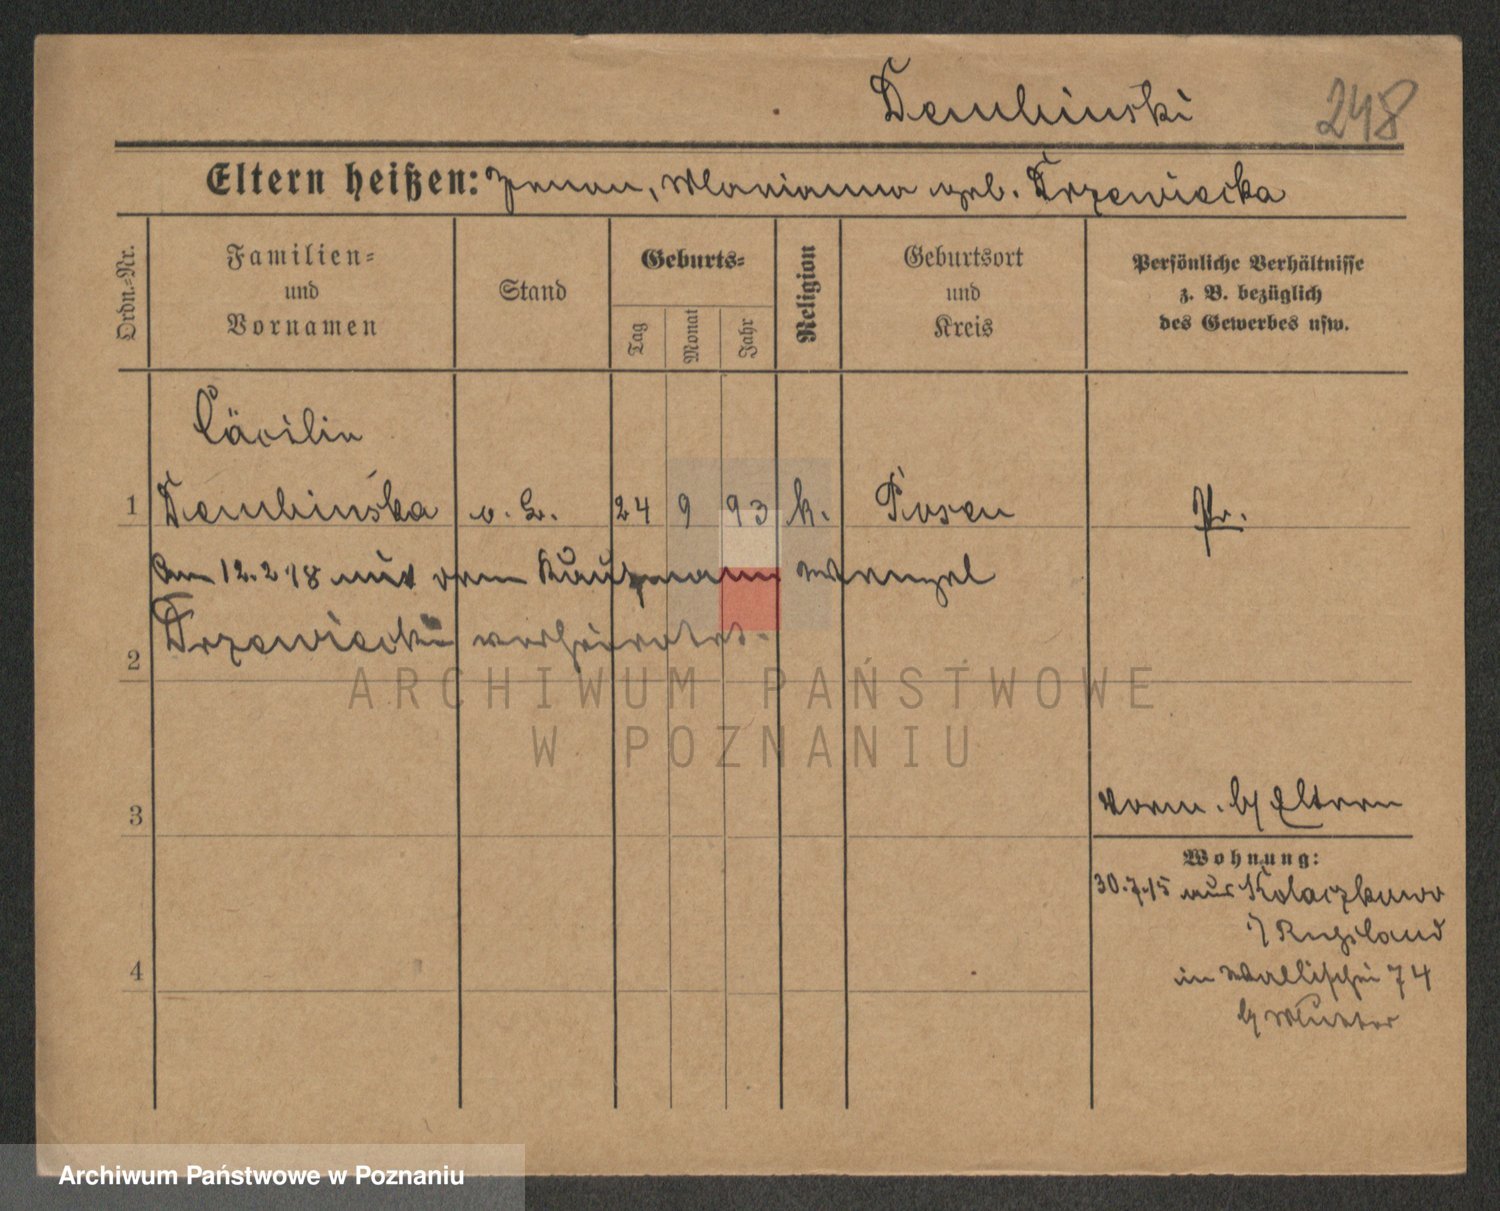 Dembinski
248
Eltern heißen: Zenon, Marianna geb. Trzewiecka
Ordn.-Nr.
Familien-
und
Vornamen
Stand
Geburts-
Tag
Monat
Jahr
Religion
Geburtsort
und
Kreis
Persönliche Verhältnisse
z. B. bezüglich
des Gewerbes usw.
Cäcilie
1 Dembinska o. G. 24 9 93 k. Posen Pr.
Am 12.2.18 mit dem Kaufmann
Trzewiecki verheiratet.
2
3
4
Vorm. b/ Eltern
Wohnung:
30.7.15 aus Kolaczkowo
i/ Rußland
in Wallischei 74
b/ Mutter
ARCHIWUM PAŃSTWOWE
W POZNANIU
Archiwum Państwowe w Poznaniu